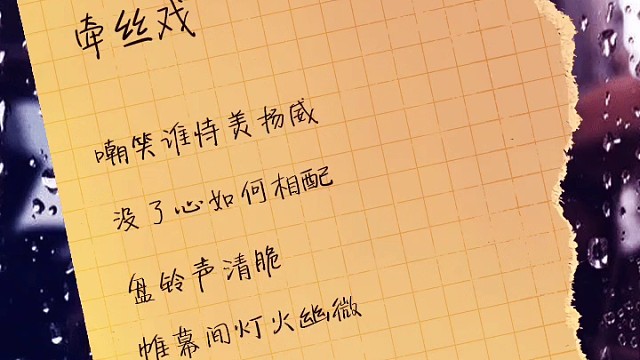 牵丝戏
嘲笑谁恃美扬威
没了心如何相配
盘铃声清脆
帷幕间灯火幽微